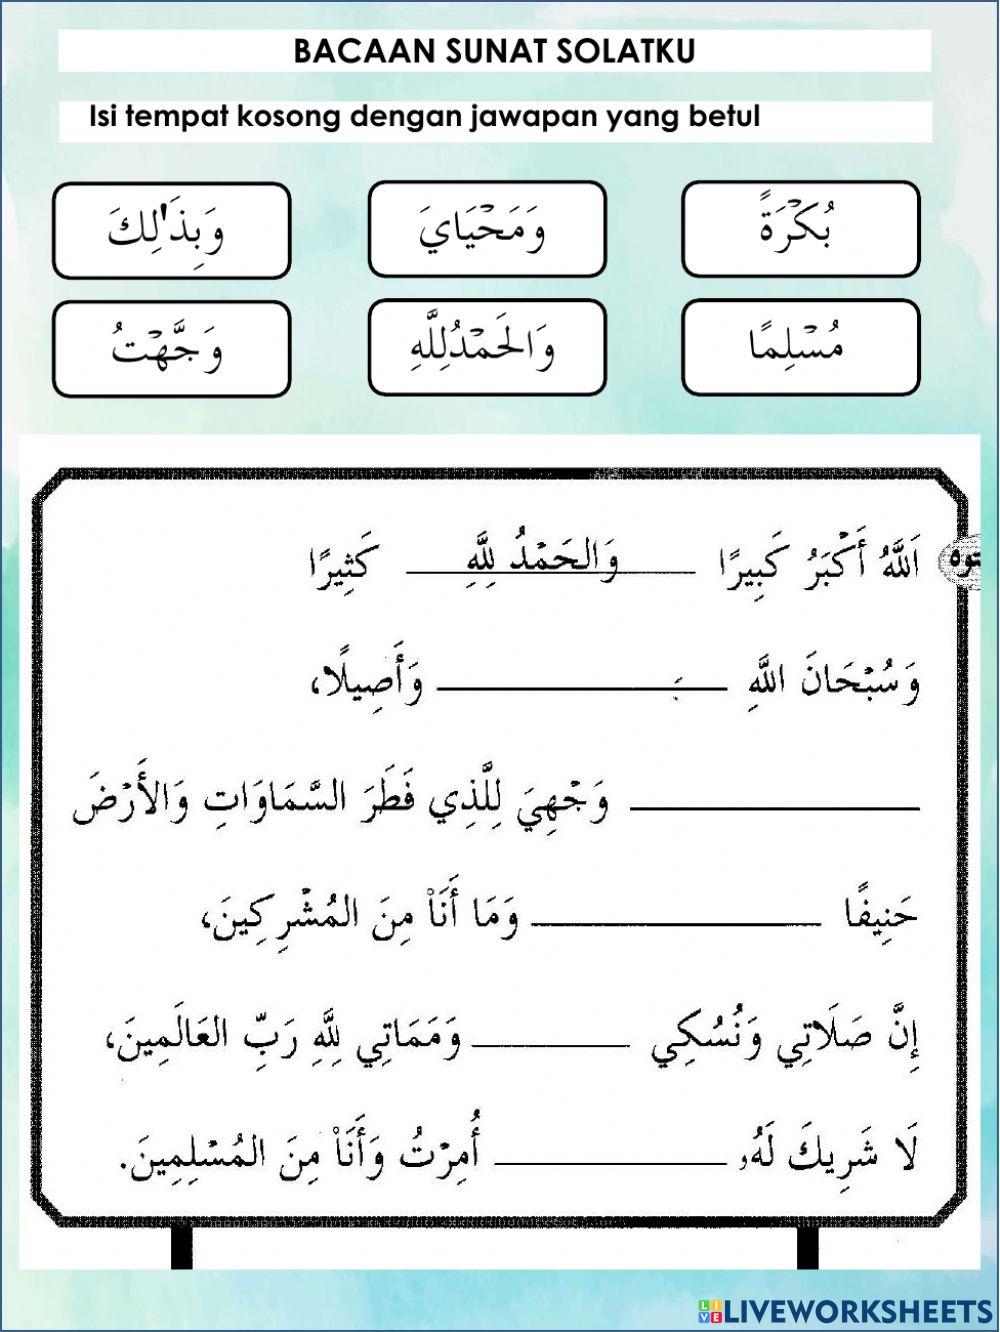 BACAAN SUNAT SOLATKU
Isi tempat kosong dengan jawapan yang betul
وَبِذَٰلِكَ
وَمَحْيَايَ
بُكْرَةً
وَجَّهْتُ
وَالْحَمْدُلِلَّهِ
مُسْلِمًا
اَللَّهُ أَكْبَرُ كَبِيرًا وَالْحَمْدُ لِلَّهِ كَثِيرًا
وَسُبْحَانَ اللَّهِ ____ وَأَصِيلًا،
____ وَجْهِيَ لِلَّذِي فَطَرَ السَّمَاوَاتِ وَالأَرْضَ
حَنِيفًا ____ وَمَا أَنَاْ مِنَ المُشْرِكِينَ،
إِنَّ صَلَاتِي وَنُسُكِي ____ وَمَمَاتِي لِلَّهِ رَبِّ العَالَمِينَ،
لَا شَرِيكَ لَهُۥ ____ أُمِرْتُ وَأَنَاْ مِنَ المُسْلِمِينَ.
LIVEWORKSHEETS